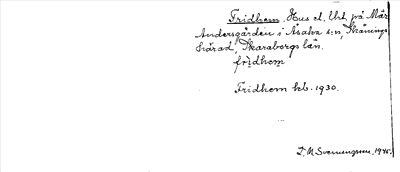 Fridhem. Hus el. Uht. på Mår
Andersgården i Åsaka s:n, Skånings
härad, Skaraborgs län.
fridhem
Fridhem kb. 1930.
D. N. Svennungsson. 1945.